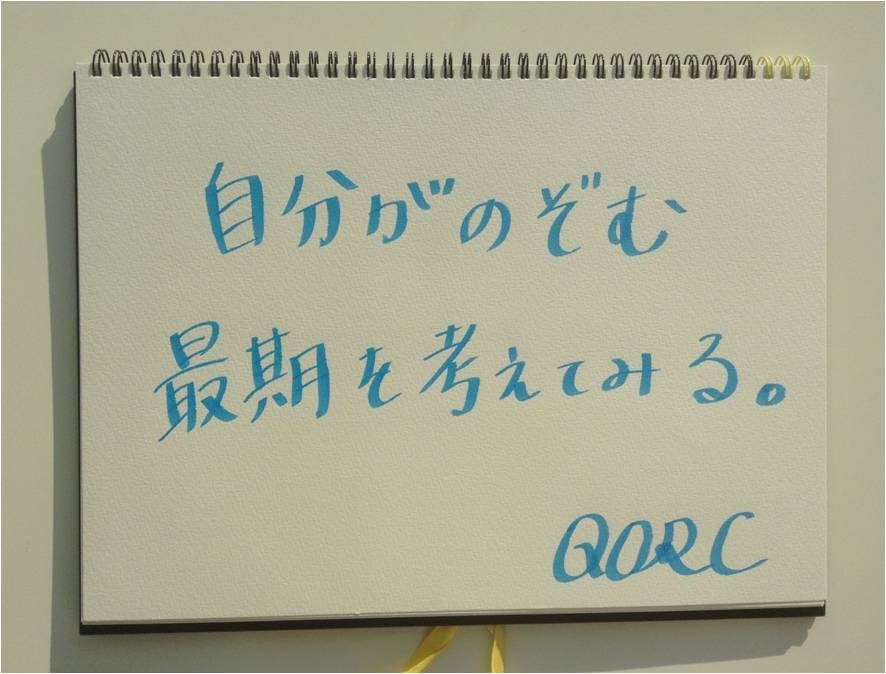 自分がのぞむ
最期を考えてみる。
QORC